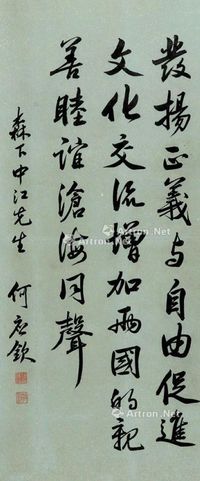 發揚正義与自由促進
文化交流增加兩國的親
善睦誼滄海同聲
森下中江先生
何应欽
Artron.Net
Artron.Net
Artron.Net
Artron.Net